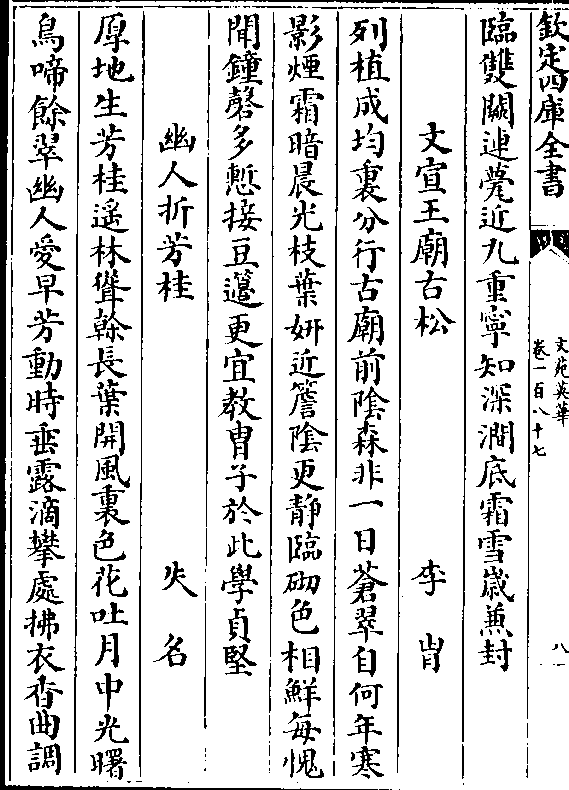 欽定四庫全書
文苑英華
卷一百八十七
八
臨雙闕連甍近九重寧知深澗底霜雪歲兼封
文宣王廟古松 李胄
列植成均裏分行古廟前陰森非一日蒼翠自何年寒
影煙霜暗晨光枝葉妍近簷陰更靜臨砌色相鮮每愧
聞鐘磬多慙接豆籩更宜教胄子於此學貞堅
幽人折芳桂 失名
厚地生芳桂遙林聳榦長葉開風裏色花吐月中光曙
鳥啼餘翠幽人愛早芳動時垂露滴攀處拂衣香曲調